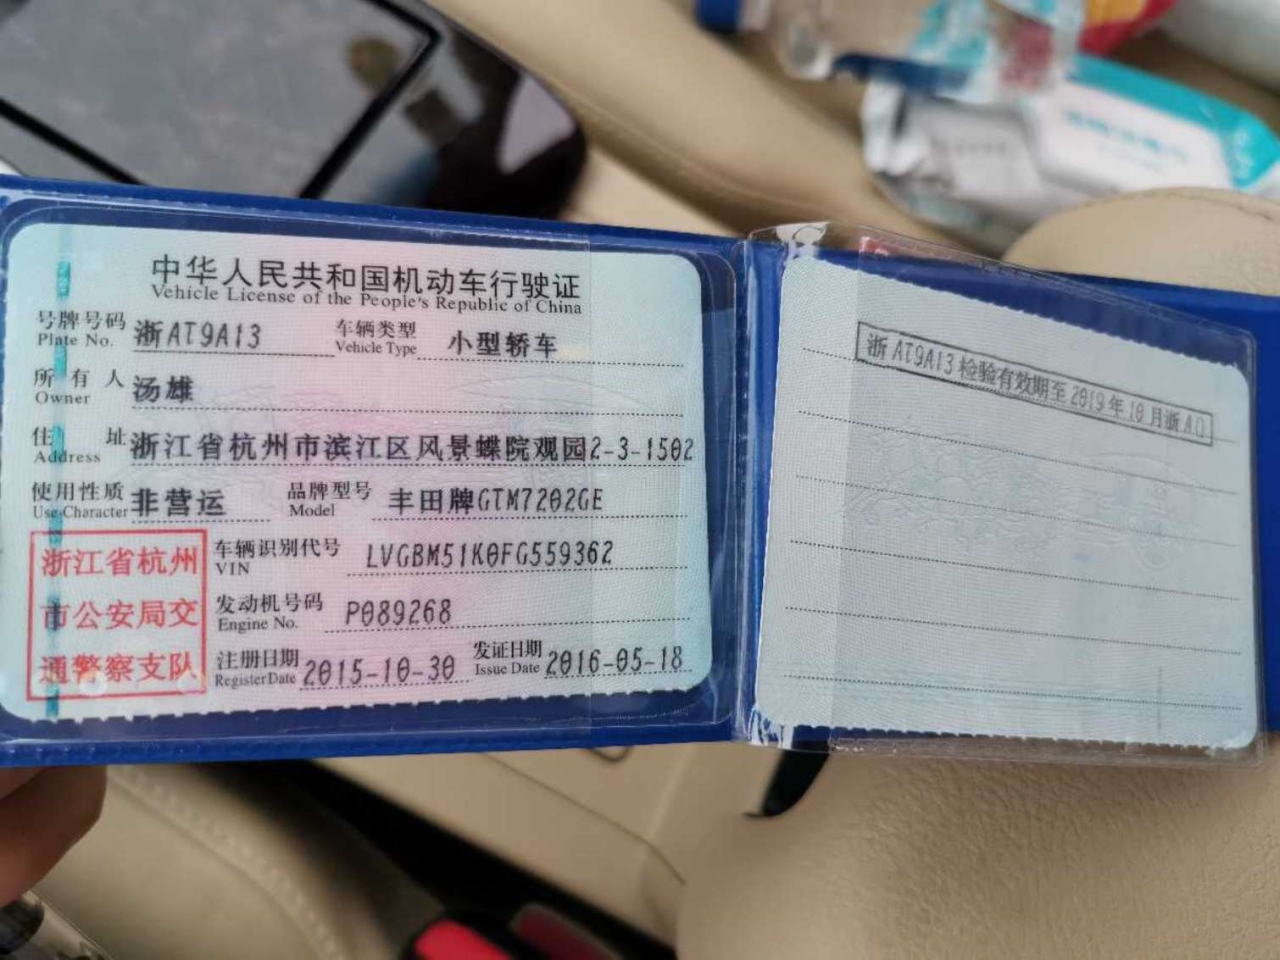 中华人民共和国机动车行驶证
Vehicle License of the People's Republic of China
号牌号码 浙AT9A13 车辆类型 小型轿车
Plate No. Vehicle Type
所有人 汤雄
Owner
住址 浙江省杭州市滨江区风景蝶院观园2-3-1502
Address
使用性质 非营运 品牌型号 丰田牌GTM7202GE
Use Character Model
浙江省杭州
市公安局交
通警察支队
车辆识别代号 LVGBM51K0FG559362
VIN
发动机号码 P089268
Engine No.
注册日期 2015-10-30 发证日期 2016-05-18
Register Date Issue Date
浙AT9A13检验有效期至2019年10月浙AQ